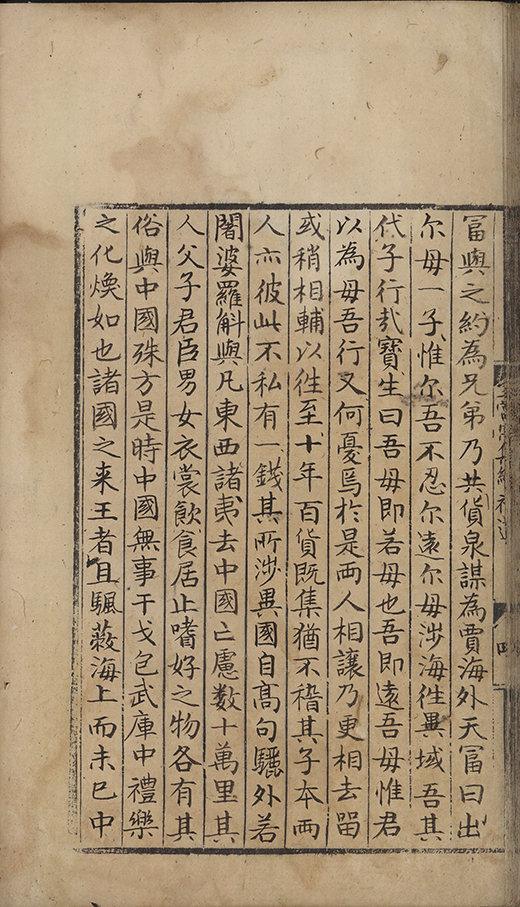 冨與之約為兄弟乃共貨泉謀為賈海外天冨曰出
尔母一子惟尔吾不忍尔遠尔母涉海徃異域吾其
代子行㢤寶生曰吾母即若母也吾即遠吾母惟君
以為母吾行又何憂焉於是两人相讓乃更相去留
或稍相輔以徃至十年百貨既集猶不稽其子夲两
人亦彼此不私有一錢其所涉異國自高句驪外若
闍婆羅斛與凡東西諸夷去中國亡慮数十萬里其
人父子君臣男女衣裳飲食居止嗜好之物各有其
俗與中國殊方是時中國無事干戈包武庫中禮樂
之化煥如也諸國之来王者且颿蔽海上而未已中